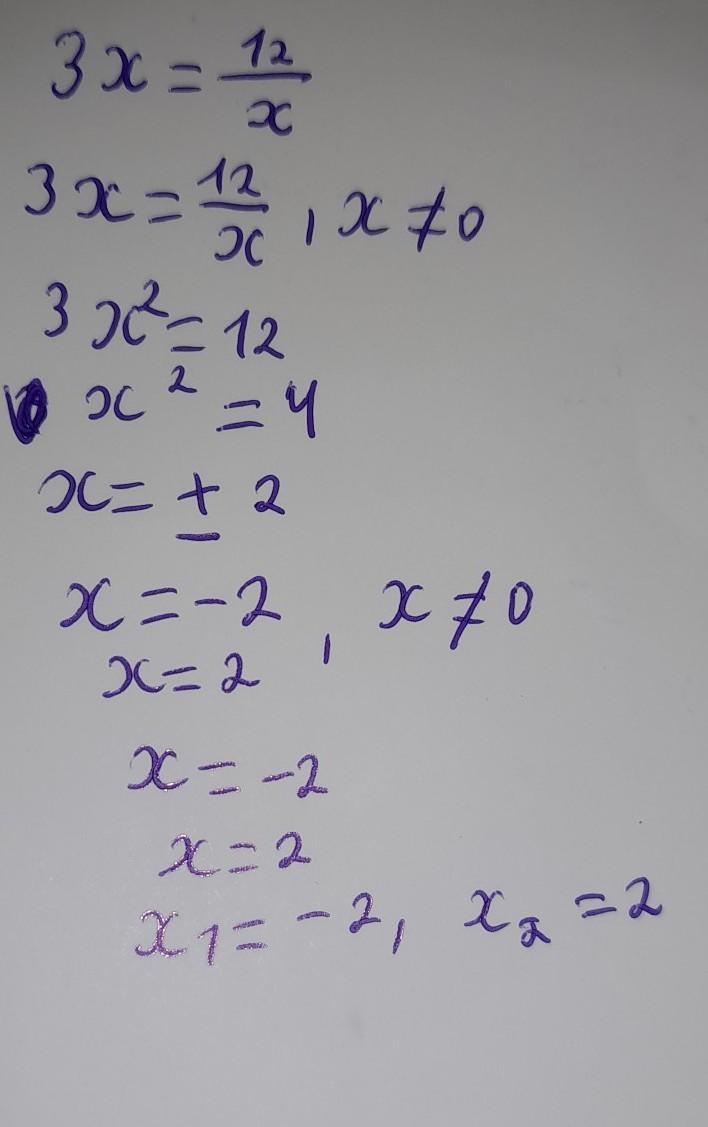 3x = 12/x
3x = 12/x , x ≠ 0
3x² = 12
x² = 4
x = ± 2
x = -2 , x ≠ 0
x = 2
x = -2
x = 2
x₁ = -2, x₂ = 2